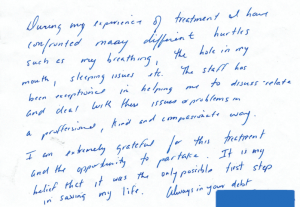 During my experience of treatment I have
confronted many different hurtles
such as my breathing, the hole in my
mouth, sleeping issues etc. The staff has
been exceptional in helping me to discuss relate
and deal with these issues & problems in
a professional, kind and compassionate way.
I am extremely grateful for this treatment
and the opportunity to partake. It is my
belief that it was the only possible first step
in saving my life. Always in your debt,